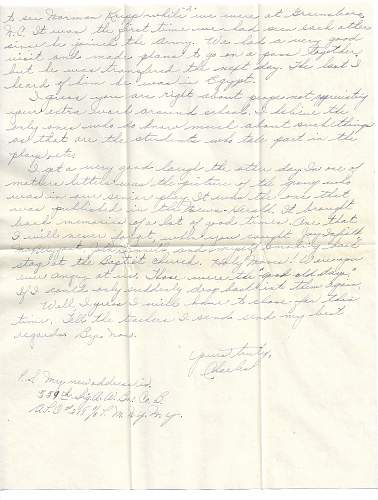 -2-
to see Norman Kripp while we were at Greensboro,
N.C. It was the first time we had seen each other
since he joined the Army. We had a very good
visit and made plans to go on a pass together,
but he was transferred the next day. The last I
heard of him he was in Egypt.
I guess you are right about people not appreciating
your extra work around school. I believe the
only ones who do know much about such things
as that are the students who take part in the
plays, etc.
I got a very good laugh the other day. In one of
mothers letters was the picture of the group who
was in our senior play. It was the one that
was published in the News-. It brought
back memories of a lot of good times. One that
I will never forget is when you caught Joy
and myself
stage at the Baptist church. Holy Moses! Were you
ever angry at us. Those were the "good old days."
If I could only suddenly drop back into them again.
Well, I guess I will have to close for this
time. Tell the teachers I send my best
regards. Bye now.
Yours truly,
Charles
P.S. My new address is
559th Sig. A.W. Bn. Co. B
A.P.O. # % P.M. N.Y. N.Y.